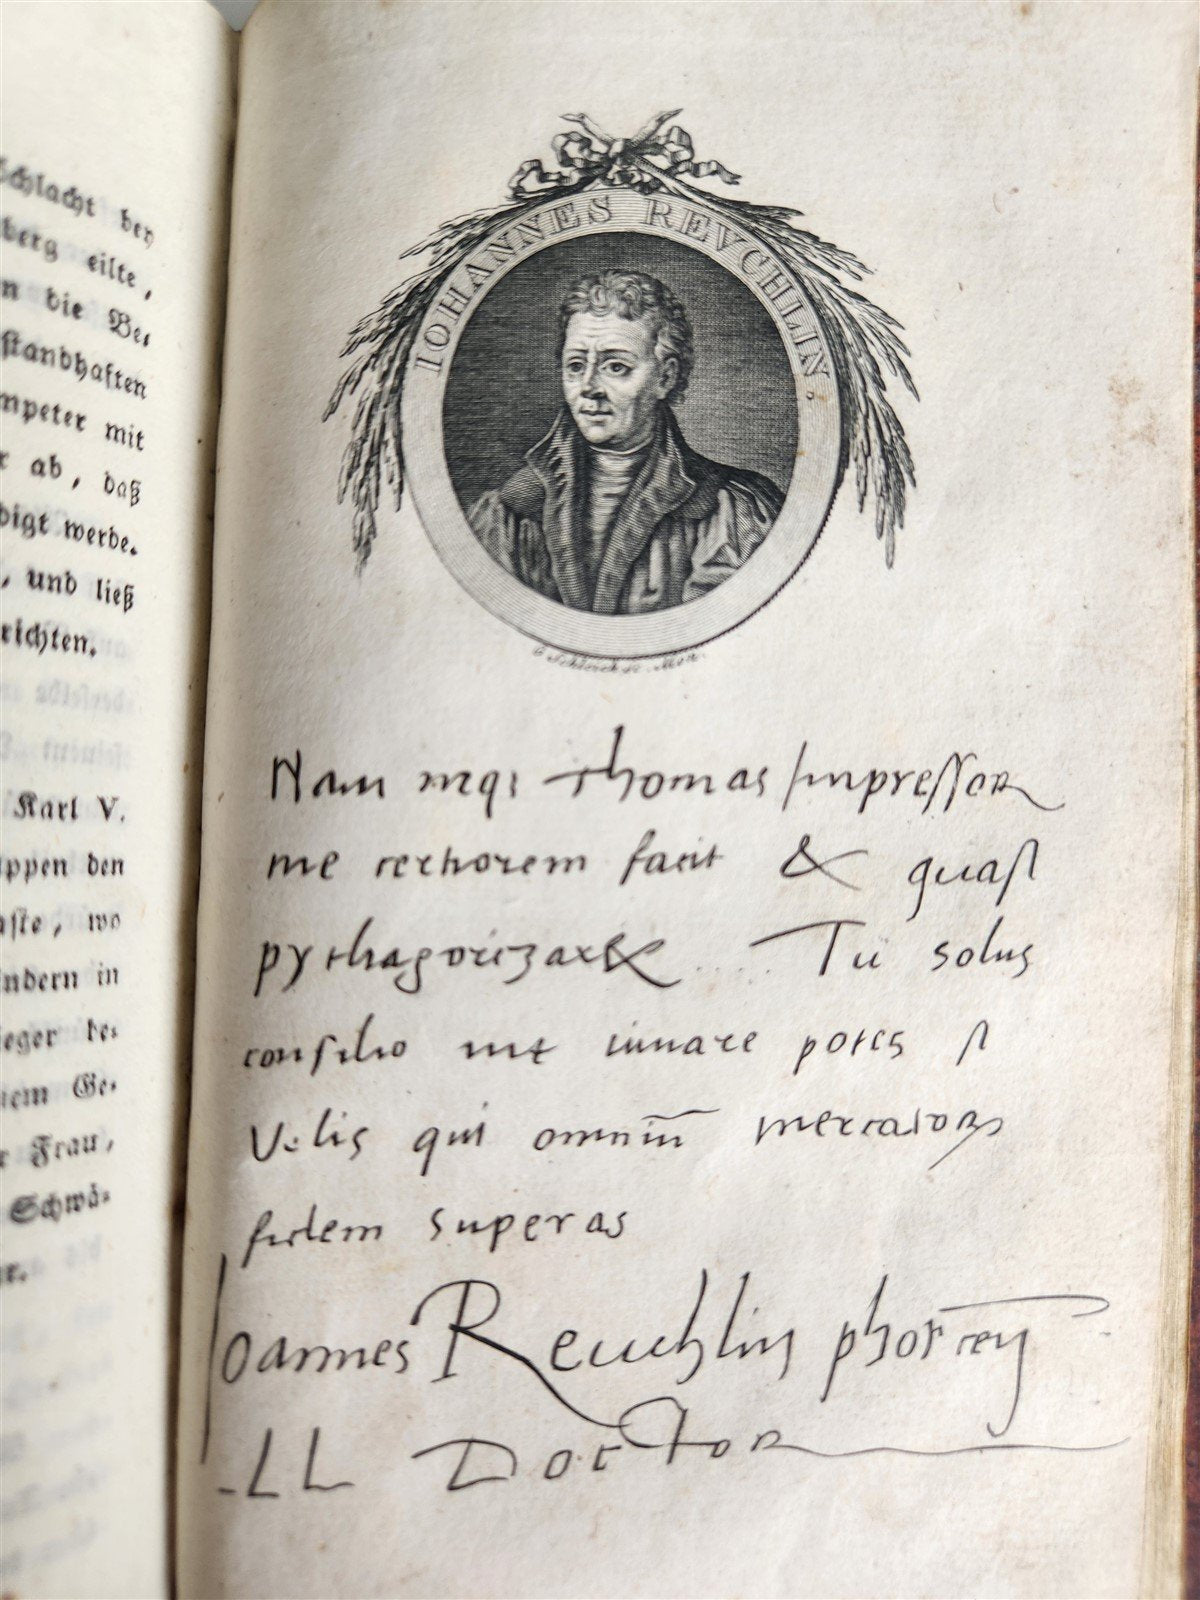 Schlacht bey
berg eilte,
n die Be⸗
ſtandhaften
mpeter mit
r ab, daß
digt werde.
, und ließ
richten.
Karl V.
ppen den
aſte, wo
ndern in
ieger be⸗
nem Ge⸗
r Frau,
Schwä⸗
er.
IOHANNES REVCHLIN.
Schleich sc. Mon.
Nam neqꝫ Thomas Impreſſor
me certiorem facit & quaſi
pythagorizat& ..... Tu solus
conſilio me iuuare potes ſi
Velis qui omniū mercatoꝝ
fidem superas
Joannes Reuchlin phorceñ
LL Doctor